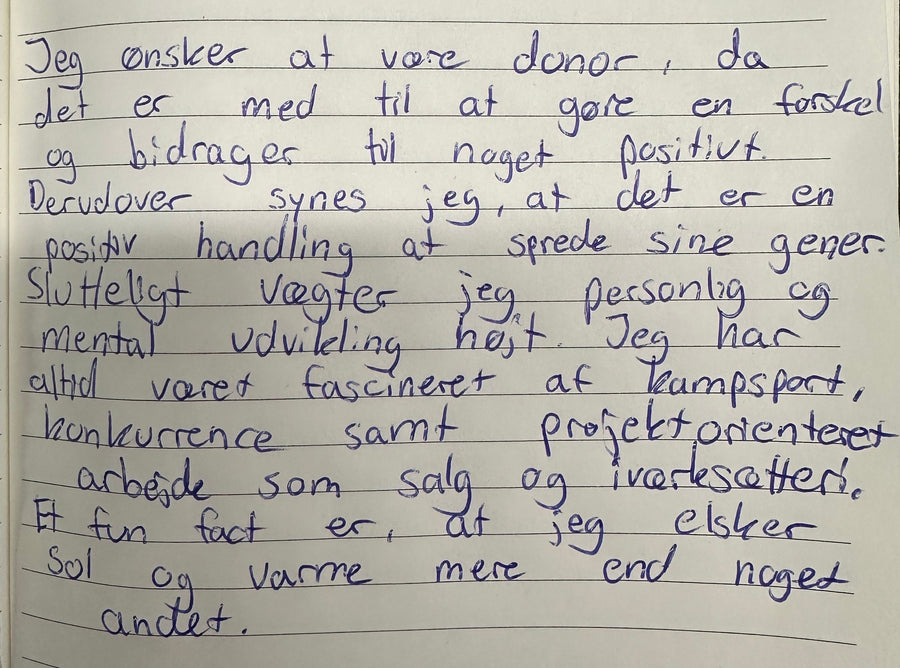 Jeg ønsker at være donor, da
det er med til at gøre en forskel
og bidrager til noget positivt.
Derudover synes jeg, at det er en
positiv handling at sprede sine gener.
Slutteligt vægter jeg personlig og
mental udvikling højt. Jeg har
altid været fascineret af kampsport,
konkurrence samt projektorienteret
arbejde som salg og iværksætteri.
Et fun fact er, at jeg elsker
Sol og varme mere end noget
andet.